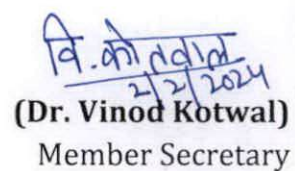 वि. कोतवाल
2/2/2024
(Dr. Vinod Kotwal)
Member Secretary